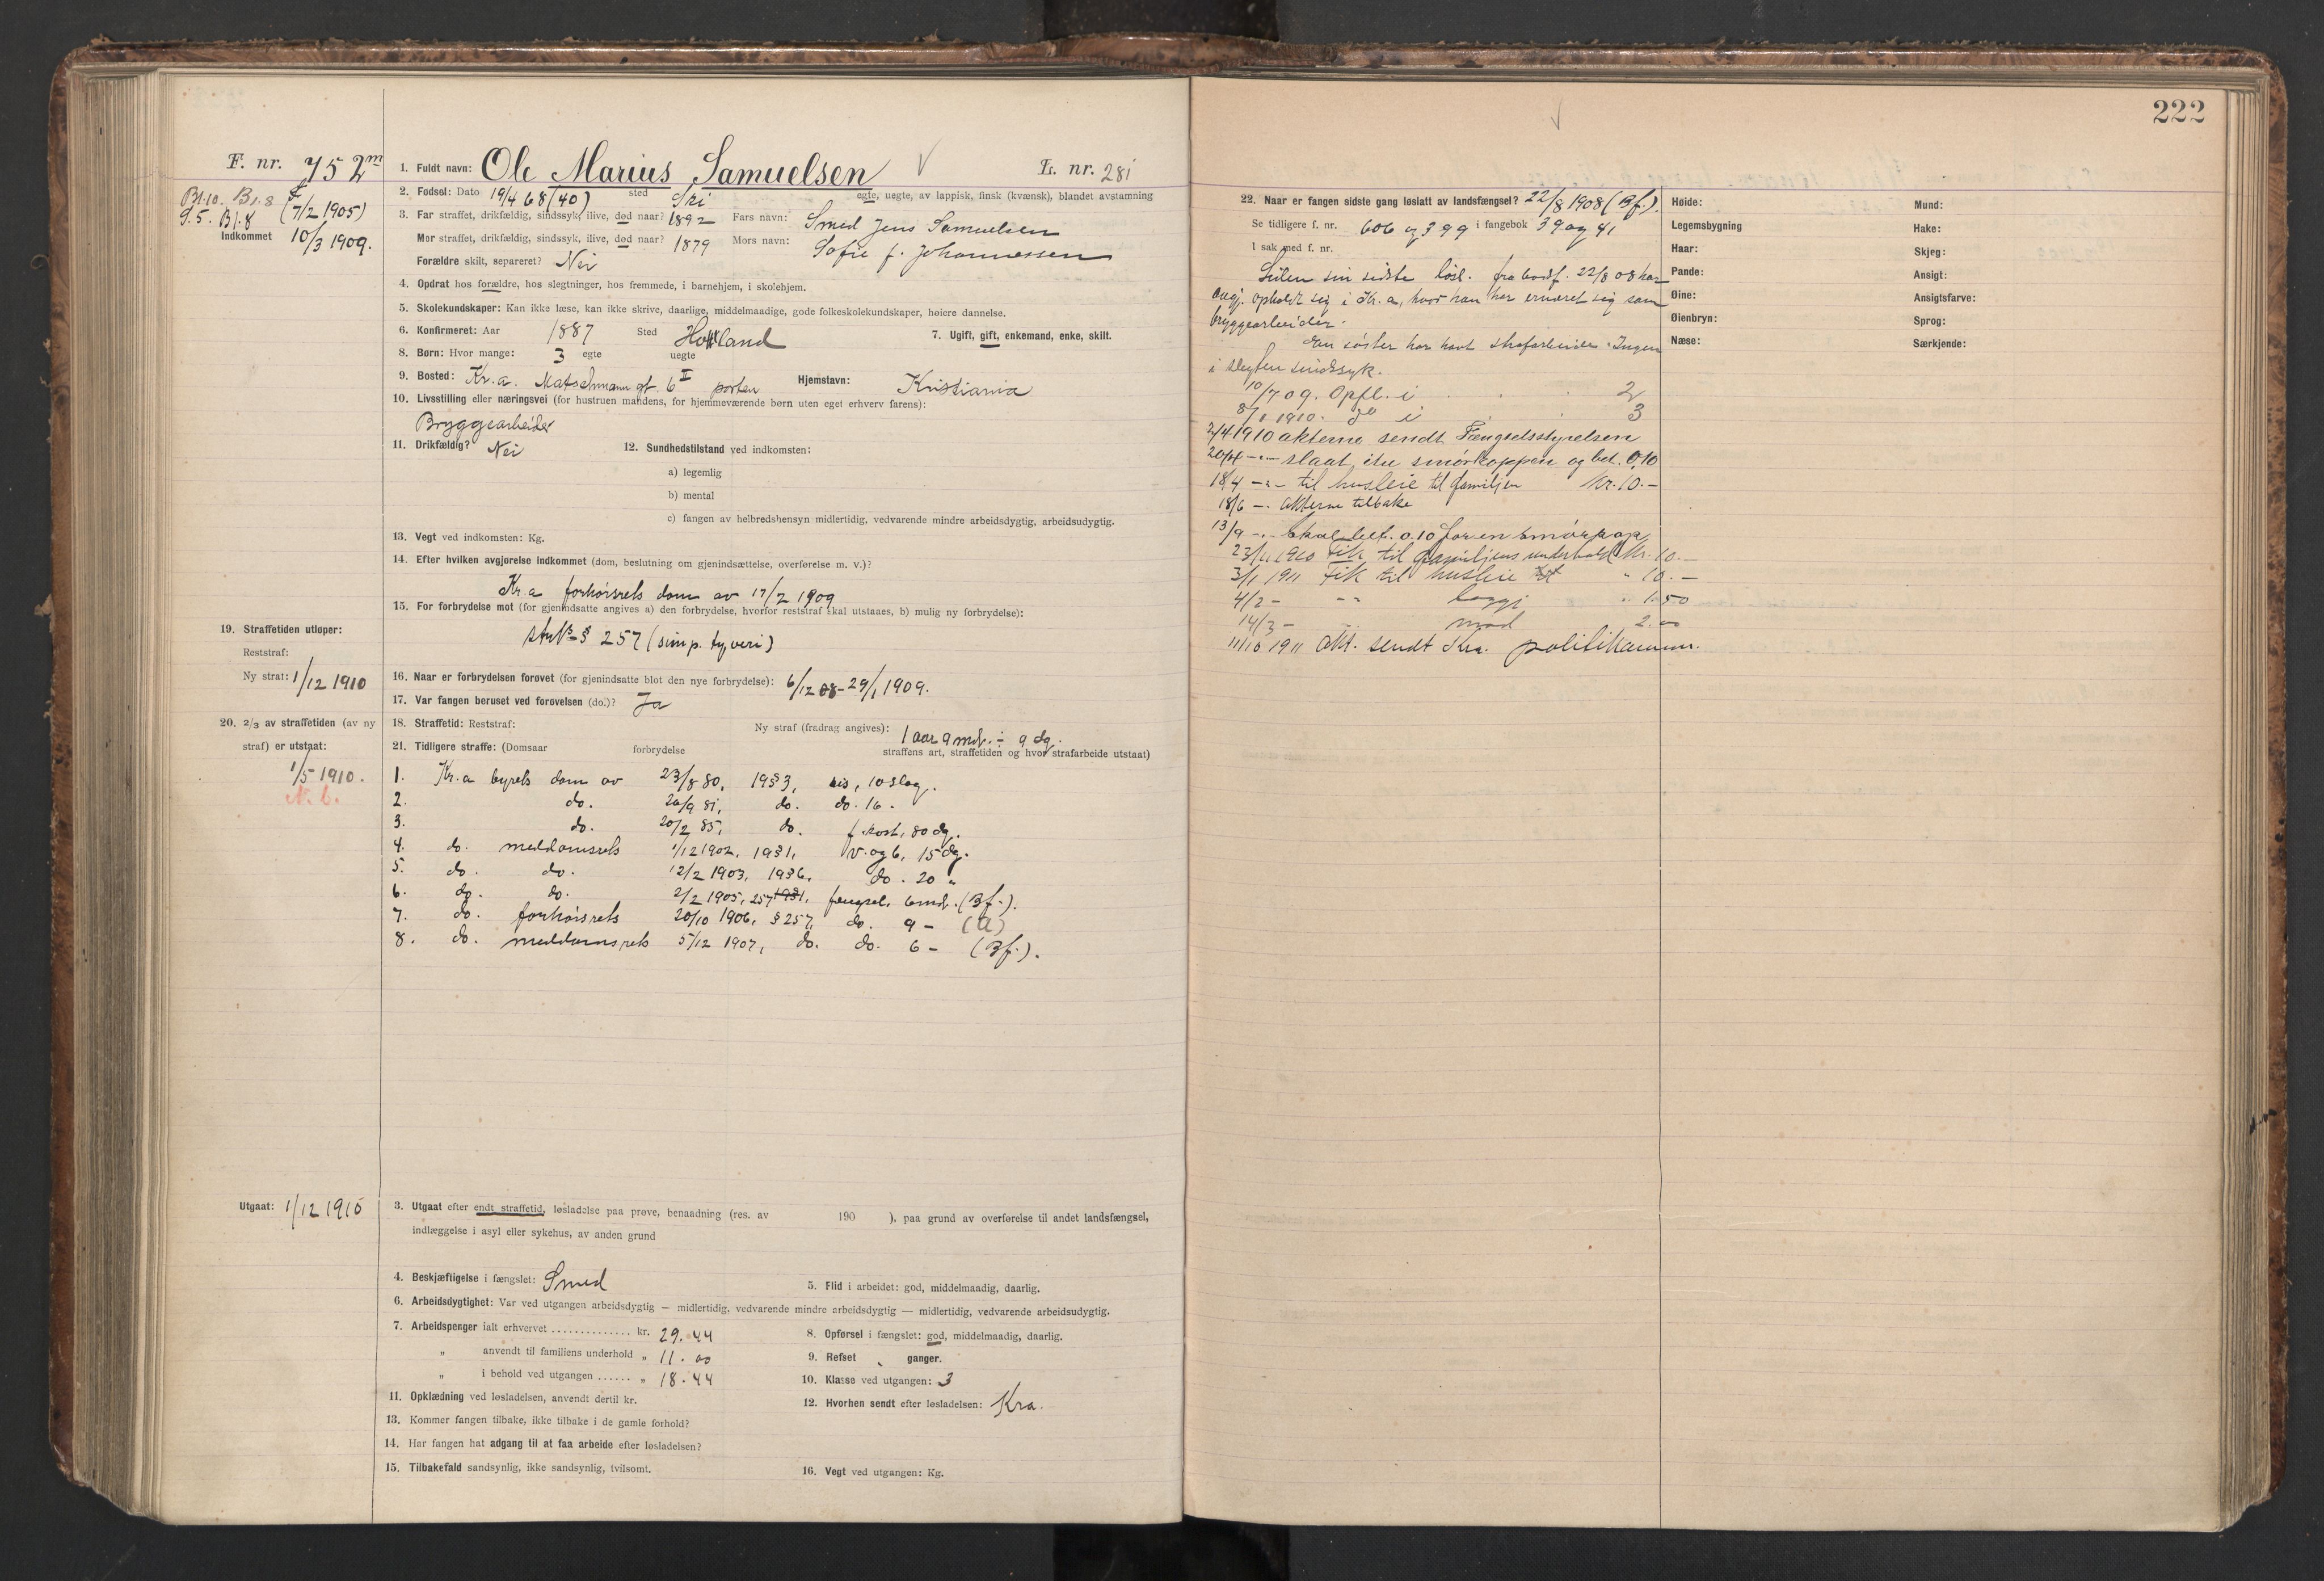 222
F. nr. 752 m
1. Fuldt navn: Ole Marius Samuelsen
L. nr. 281
Bl.10. Bl.8
S.5. Bl.8 (7/2 1905)
Indkommet 10/3 1909.
2. Fødsel: Dato 19/4 68 (40) sted Ski egte, uegte, av lappisk, finsk (kvænsk), blandet avstamning
3. Far straffet, drikfældig, sindssyk, ilive, død naar? 1892 Fars navn: Smed Jens Samuelsen
Mor straffet, drikfældig, sindssyk, ilive, død naar? 1879 Mors navn: Sofie f. Johannessen
Forældre skilt, separeret? Nei
4. Opdrat hos forældre, hos slegtninger, hos fremmede, i barnehjem, i skolehjem.
5. Skolekundskaper: Kan ikke læse, kan ikke skrive, daarlige, middelmaadige, gode folkeskolekundskaper, høiere dannelse.
6. Konfirmeret: Aar 1887 Sted 7. Ugift, gift, enkemand, enke, skilt.
8. Børn: Hvor mange: 3 egte uegte
9. Bosted: Kr.a. gt. 6 I porten Hjemstavn: Kristiania
10. Livsstilling eller næringsvei (for hustruen mandens, for hjemmeværende børn uten eget erhverv farens):
Bryggearbeider
11. Drikfældig? Nei 12. Sundhedstilstand ved indkomsten:
a) legemlig
b) mental
c) fangen av helbredshensyn midlertidig, vedvarende mindre arbeidsdygtig, arbeidsudygtig.
13. Vegt ved indkomsten: Kg.
14. Efter hvilken avgjørelse indkommet (dom, beslutning om gjenindsættelse, overførelse m. v.)?
Kr.a forhørsrets dom av 17/2 1909
15. For forbrydelse mot (for gjenindsatte angives a) den forbrydelse, hvorfor reststraf skal utstaaes, b) mulig ny forbrydelse):
§ 257 (simp. tyveri)
19. Straffetiden utløper:
Reststraf:
Ny straf: 1/12 1910
16. Naar er forbrydelsen forøvet (for gjenindsatte blot den nye forbrydelse): 6/12 08 - 29/1 1909.
17. Var fangen beruset ved forøvelsen (do.)? Ja
20. 2/3 av straffetiden (av ny
straf) er utstaat:
1/5 1910.
N. 6.
18. Straffetid: Reststraf: Ny straf (fradrag angives): 1 aar 9 mdr. ÷ 9 dg.
21. Tidligere straffe: (Domsaar forbrydelse straffens art, straffetiden og hvor strafarbeide utstaat)
1. Kr.a byrets dom av 23/8 80, 19§3, ris, 10 slag.
2. do. 20/9 81, do. do. 16 -
3. do. 20/2 85, do. f. kost, 80 dg.
4. do. meddomsrets 1/12 1902, 19§1, v. og b, 15 dg.
5. do. do. 12/2 1903, 19§6, do. 20 "
6. do. do. 2/2 1905, 257 19§1, fængsel, 6 mdr. (Bf.).
7. do. forhørsrets 20/10 1906, § 257, do. 9 - (A)
8. do. meddomsrets 5/12 1907, do. do. 6 - (Bf.).
Utgaat: 1/12 1910
3. Utgaat efter endt straffetid, løsladelse paa prøve, benaadning (res. av 190 ), paa grund av overførelse til andet landsfængsel,
indlæggelse i asyl eller sykehus, av anden grund
4. Beskjæftigelse i fængslet: Smed 5. Flid i arbeidet: god, middelmaadig, daarlig.
6. Arbeidsdygtighet: Var ved utgangen arbeidsdygtig — midlertidig, vedvarende mindre arbeidsdygtig — midlertidig, vedvarende arbeidsudygtig.
7. Arbeidspenger ialt erhvervet .............. kr. 29.44 8. Opførsel i fængslet: god, middelmaadig, daarlig.
" anvendt til familiens underhold " 11.00 9. Refset " ganger.
" i behold ved utgangen ...... " 18.44 10. Klasse ved utgangen: 3
11. Opklædning ved løsladelsen, anvendt dertil kr. 12. Hvorhen sendt efter løsladelsen: Kra.
13. Kommer fangen tilbake, ikke tilbake i de gamle forhold?
14. Har fangen hat adgang til at faa arbeide efter løsladelsen?
15. Tilbakefald sandsynlig, ikke sandsynlig, tvilsomt. 16. Vegt ved utgangen: Kg.
22. Naar er fangen sidste gang løslatt av landsfængsel? 22/8 1908 (Bf.).
Se tidligere f. nr. 606 og 399 i fangebok 39 og 41
I sak med f. nr.
Siden sin sidste løsl. fra bodsf. 22/8 08 har
angj. opholdt sig i Kr.a, hvor han har ernæret sig som
bryggearbeider.
En søster har havt strafarbeide. Ingen
i slegten sindssyk.
10/7 09. Opfl. i 2
8/1 1910. do i 3
2/4 1910 akterne sendt Fængselsstyrelsen
20/4 -"- slaat itu smørkoppen og bet. 0,10
18/4 -"- til husleie til familjen Kr. 10.-
18/6 -. akterne tilbake
13/9 -"- Skal bet. 0.10 for en smørkop
23/11 1910 Fik til familjens underhold Kr. 10.-
3/1 1911 Fik til husleie " 10.-
4/2 - -"- " 1.50
14/3 - " mad 2.00
11/10 1911 Akt. sendt Kra. politikammer.
Høide:
Legemsbygning
Haar:
Pande:
Øine:
Øienbryn:
Næse:
Mund:
Hake:
Skjeg:
Ansigt:
Ansigtsfarve:
Sprog:
Særkjende: